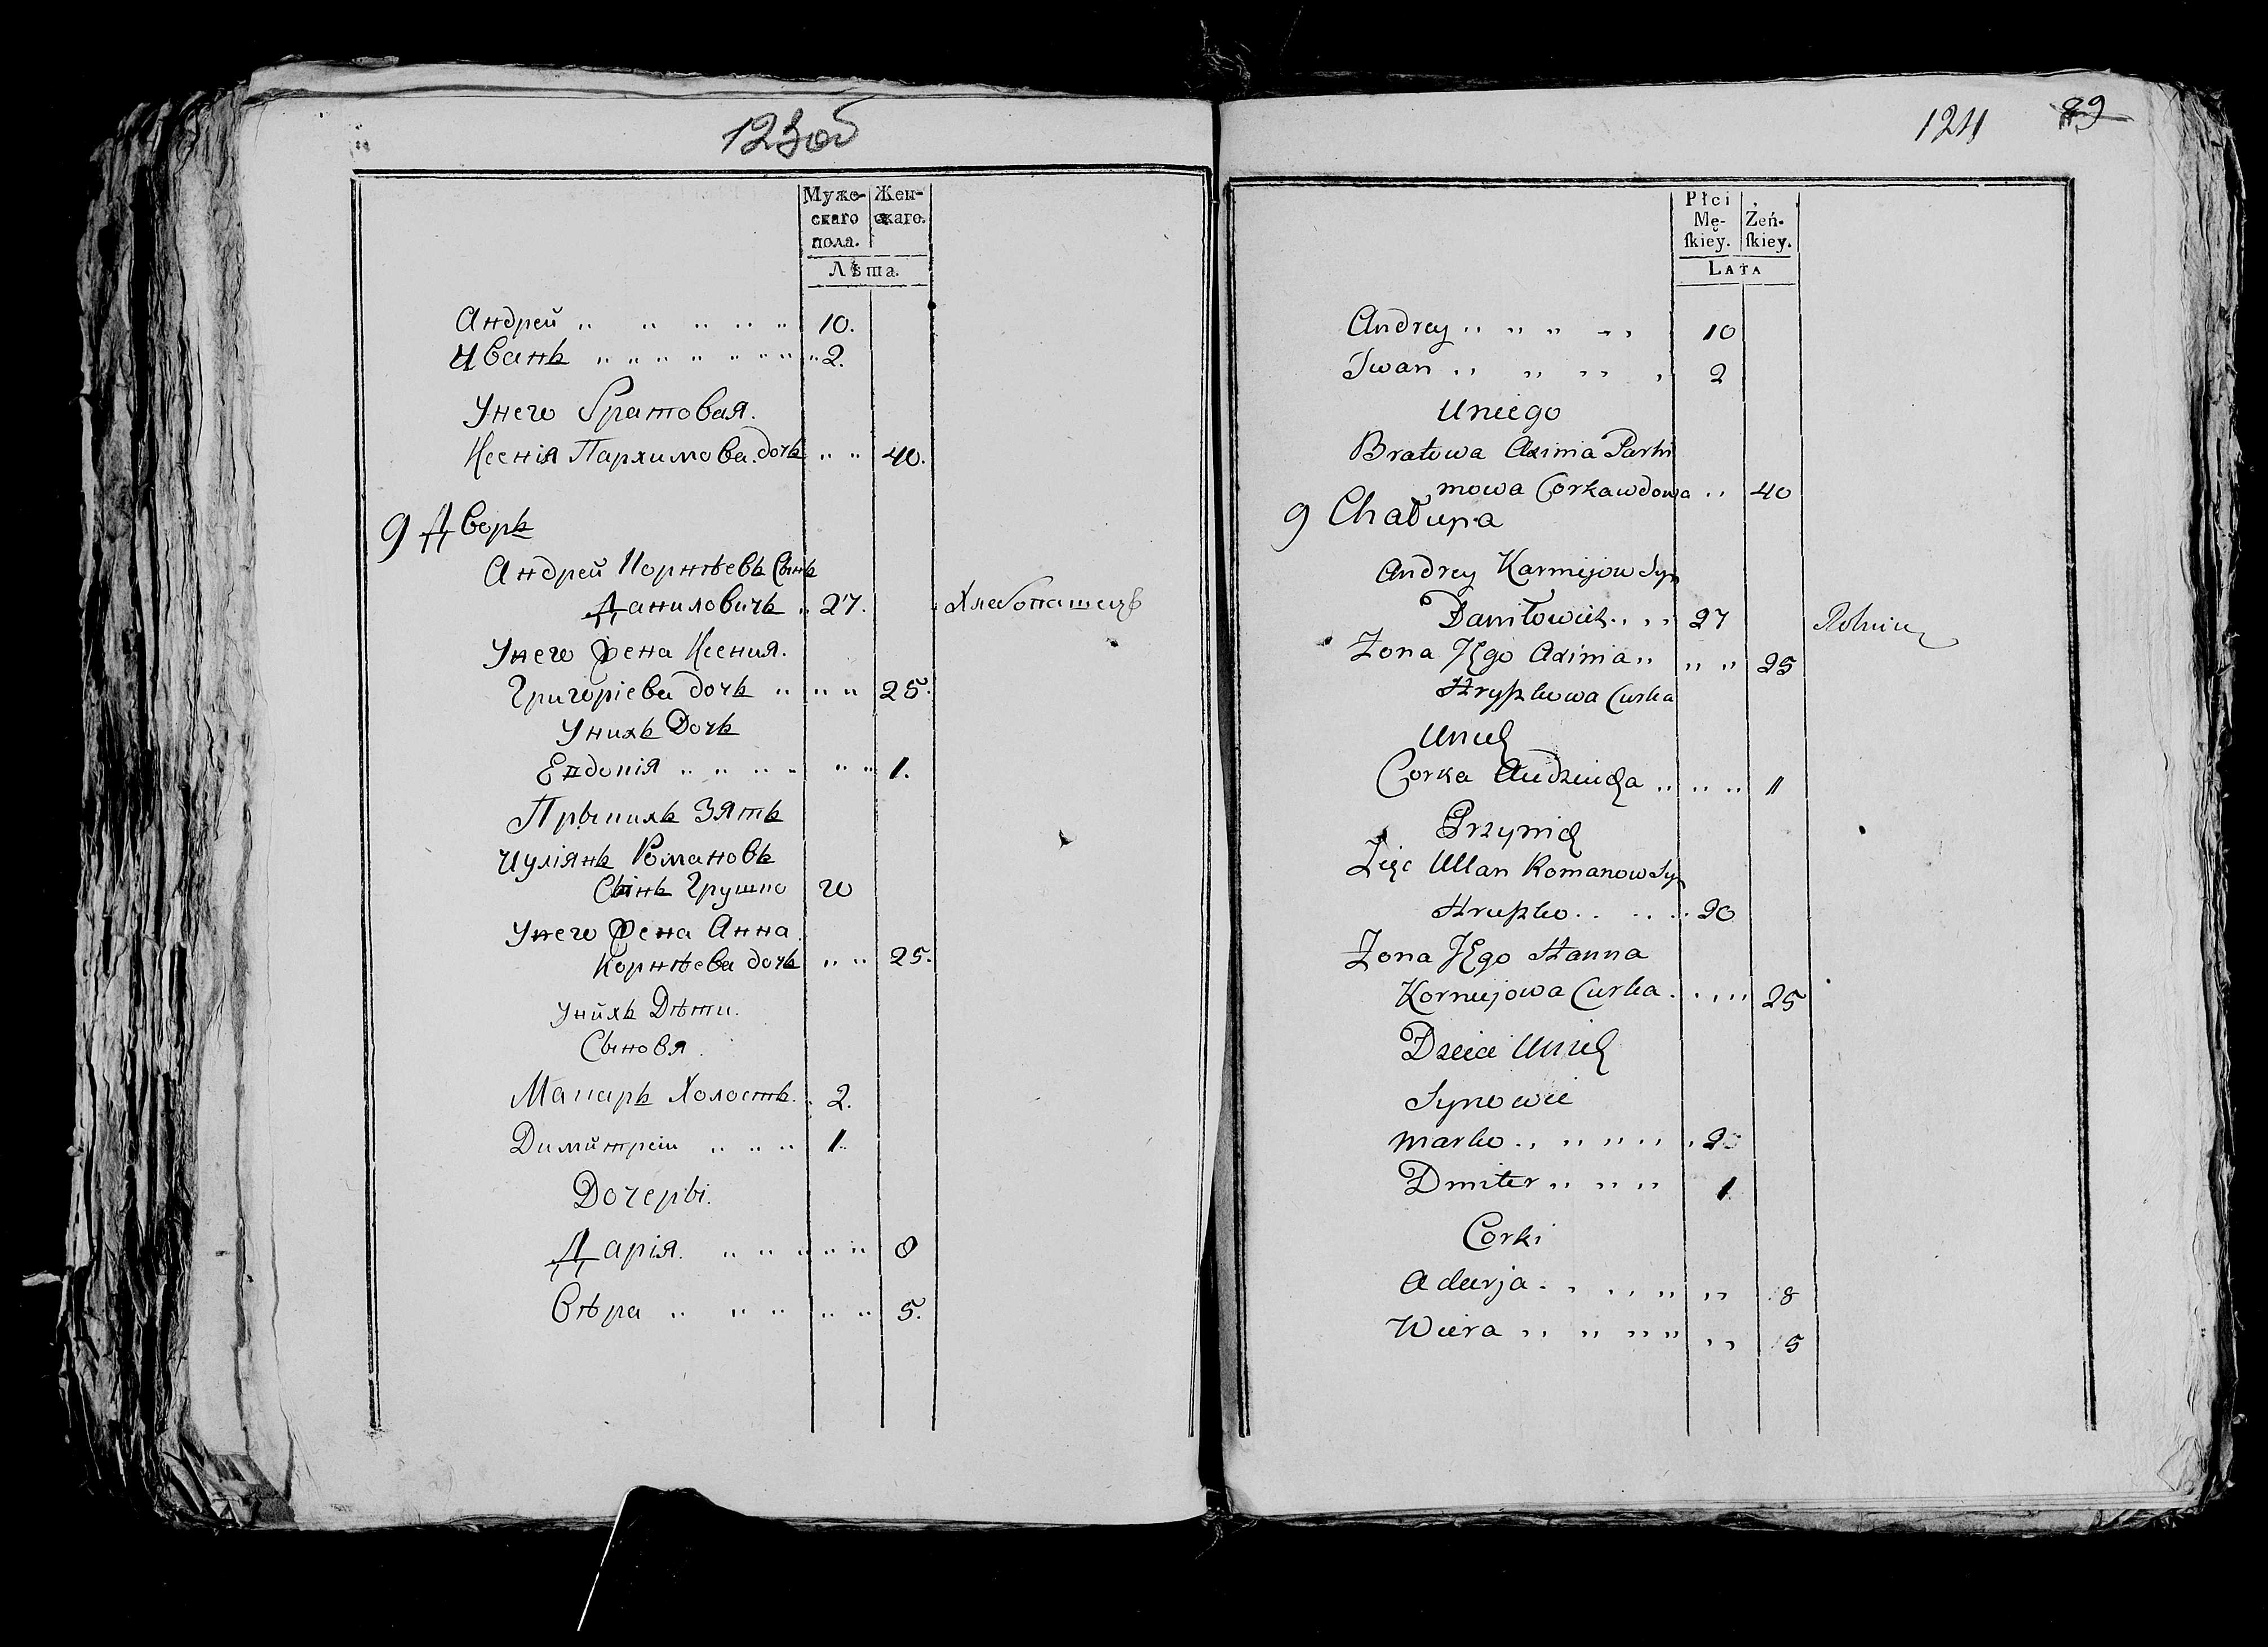 123об
Муже- Жен-
скаго скаго.
пола.
Лѣта.
Андрей „ „ „ „ „ 10.
Иванъ „ „ „ „ „ „ „ „ 2.
Унего братовая.
Ксенія Пархимова дочь „ „ 40.
9 Дворъ
Андрей Корнѣевъ Сынъ
Даниловичъ „ 27. Хлебопашецъ
Унего Жена Ксения.
Григоріева дочь „ „ „ 25.
Унихъ Дочь
„ „ „ „ „ „ 1.
Прынихъ Зять
Иуліянъ Романовъ
Сынъ Грушко 20
Унего Жена Анна
Корнѣева дочь „ „ 25.
Унйхъ Дѣти.
Сыновя
Макаръ Холостъ. „ 2.
Димитрей „ „ „ 1.
Дочеры.
Дарія. „ „ „ „ „ 8
Вѣра „ „ „ „ „ 5.
124 89
Płci
Mę- Żeń-
ſkiey. ſkiey.
LATA
Andrey „ „ „ „ „ 10
Iwan „ „ „ „ 2
Uniego
Bratowa Axinia Parhi
mowa Corkawdowa „ 40
9 Chałupa
Andrey Karniejow Syn
Daniłowicz „ „ 27 Rolnik
Zona Jego Axinia „ „ „ 25
Hryszkowa Curka
Unich
Corka „ „ „ 1
Przynich
Zięc Ullan Romanow Syn
Hruszko . . . . 20
Zona Jego Hanna
Korniejowa Curka . „ „ 25
Dzieci Unich
Synowie
Marko „ „ „ „ „ 2
Dmiter „ „ „ 1
Corki
Adarja „ „ „ „ 8
Wiera „ „ „ „ 5